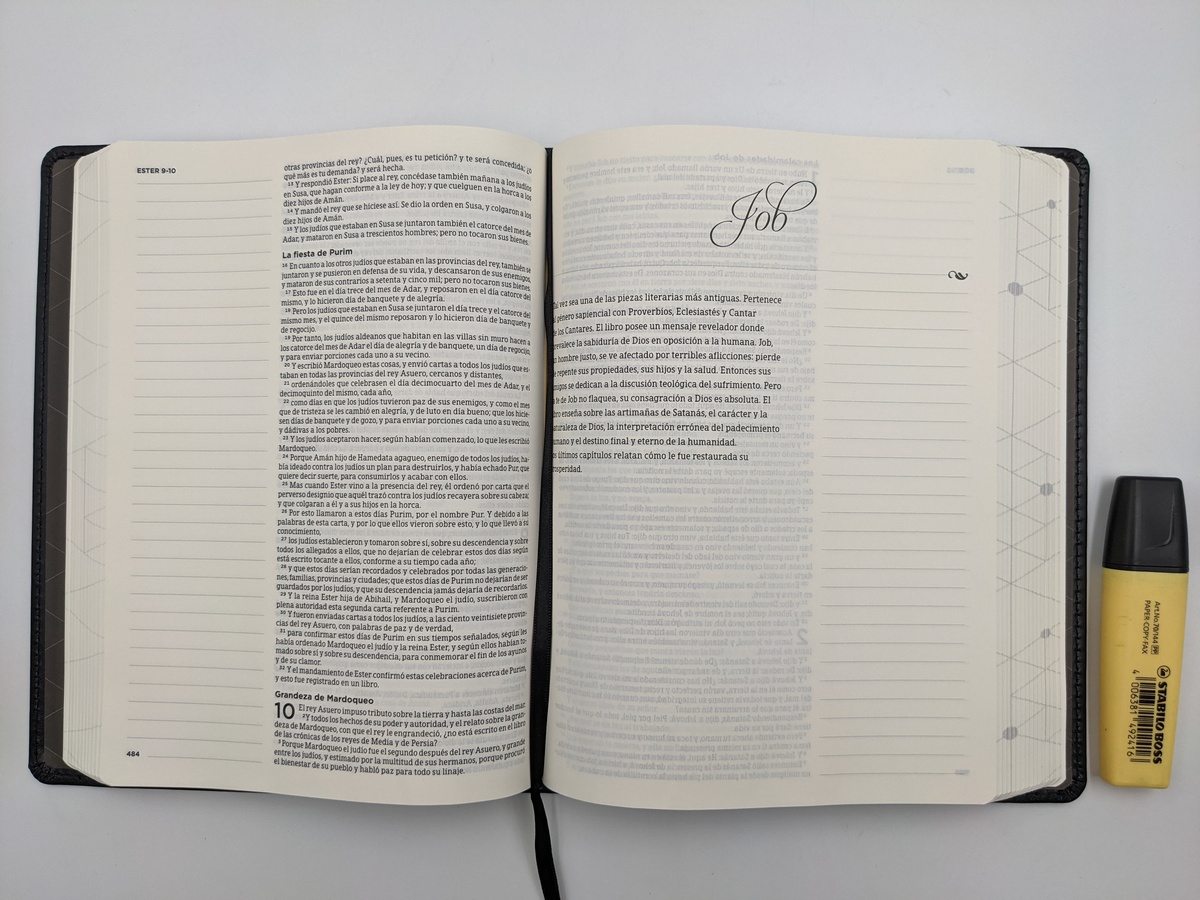 ESTER 9-10
otras provincias del rey? ¿Cuál, pues, es tu petición? y te será concedida; ¿o
qué más es tu demanda? y será hecha.
13 Y respondió Ester: Si place al rey, concédase también mañana a los judíos
en Susa, que hagan conforme a la ley de hoy; y que cuelguen en la horca a los
diez hijos de Amán.
14 Y mandó el rey que se hiciese así. Se dio la orden en Susa, y colgaron a los
diez hijos de Amán.
15 Y los judíos que estaban en Susa se juntaron también el catorce del mes de
Adar, y mataron en Susa a trescientos hombres; pero no tocaron sus bienes.
La fiesta de Purim
16 En cuanto a los otros judíos que estaban en las provincias del rey, también se
juntaron y se pusieron en defensa de su vida, y descansaron de sus enemigos,
y mataron de sus contrarios a setenta y cinco mil; pero no tocaron sus bienes.
17 Esto fue en el día trece del mes de Adar, y reposaron en el día catorce del
mismo, y lo hicieron día de banquete y de alegría.
18 Pero los judíos que estaban en Susa se juntaron el día trece y el catorce del
mismo mes, y el quince del mismo reposaron y lo hicieron día de banquete y
de regocijo.
19 Por tanto, los judíos aldeanos que habitan en las villas sin muro hacen a
los catorce del mes de Adar el día de alegría y de banquete, un día de regocijo,
y para enviar porciones cada uno a su vecino.
20 Y escribió Mardoqueo estas cosas, y envió cartas a todos los judíos que es-
taban en todas las provincias del rey Asuero, cercanos y distantes,
21 ordenándoles que celebrasen el día decimocuarto del mes de Adar, y el
decimoquinto del mismo, cada año,
22 como días en que los judíos tuvieron paz de sus enemigos, y como el mes
que de tristeza se les cambió en alegría, y de luto en día bueno; que los hicie-
sen días de banquete y de gozo, y para enviar porciones cada uno a su vecino,
y dádivas a los pobres.
23 Y los judíos aceptaron hacer, según habían comenzado, lo que les escribió
Mardoqueo.
24 Porque Amán hijo de Hamedata agagueo, enemigo de todos los judíos, ha-
bía ideado contra los judíos un plan para destruirlos, y había echado Pur, que
quiere decir suerte, para consumirlos y acabar con ellos.
25 Mas cuando Ester vino a la presencia del rey, él ordenó por carta que el
perverso designio que aquél trazó contra los judíos recayera sobre su cabeza;
y que colgaran a él y a sus hijos en la horca.
26 Por esto llamaron a estos días Purim, por el nombre Pur. Y debido a las
palabras de esta carta, y por lo que ellos vieron sobre esto, y lo que llevó a su
conocimiento,
27 los judíos establecieron y tomaron sobre sí, sobre su descendencia y sobre
todos los allegados a ellos, que no dejarían de celebrar estos dos días según
está escrito tocante a ellos, conforme a su tiempo cada año;
28 y que estos días serían recordados y celebrados por todas las generacio-
nes, familias, provincias y ciudades; que estos días de Purim no dejarían de ser
guardados por los judíos, y que su descendencia jamás dejaría de recordarlos.
29 Y la reina Ester hija de Abihail, y Mardoqueo el judío, suscribieron con
plena autoridad esta segunda carta referente a Purim.
30 Y fueron enviadas cartas a todos los judíos, a las ciento veintisiete provin-
cias del rey Asuero, con palabras de paz y de verdad,
31 para confirmar estos días de Purim en sus tiempos señalados, según les
había ordenado Mardoqueo el judío y la reina Ester, y según ellos habían to-
mado sobre sí y sobre su descendencia, para conmemorar el fin de los ayunos
y de su clamor.
32 Y el mandamiento de Ester confirmó estas celebraciones acerca de Purim,
y esto fue registrado en un libro.
Grandeza de Mardoqueo
10 El rey Asuero impuso tributo sobre la tierra y hasta las costas del mar.
2 Y todos los hechos de su poder y autoridad, y el relato sobre la gran-
deza de Mardoqueo, con que el rey le engrandeció, ¿no está escrito en el libro
de las crónicas de los reyes de Media y de Persia?
3 Porque Mardoqueo el judío fue el segundo después del rey Asuero, y grande
entre los judíos, y estimado por la multitud de sus hermanos, porque procuró
el bienestar de su pueblo y habló paz para todo su linaje.
484
Job
vez sea una de las piezas literarias más antiguas. Pertenece
género sapiencial con Proverbios, Eclesiastés y Cantar
los Cantares. El libro posee un mensaje revelador donde
la sabiduría de Dios en oposición a la humana. Job,
hombre justo, se ve afectado por terribles aflicciones: pierde
repente sus propiedades, sus hijos y la salud. Entonces sus
se dedican a la discusión teológica del sufrimiento. Pero
fe de Job no flaquea, su consagración a Dios es absoluta. El
enseña sobre las artimañas de Satanás, el carácter y la
de Dios, la interpretación errónea del padecimiento
y el destino final y eterno de la humanidad.
últimos capítulos relatan cómo le fue restaurada su
Art.No.70/144 PP
PAPER·COPY·FAX
STABILO BOSS
4 006381 492416